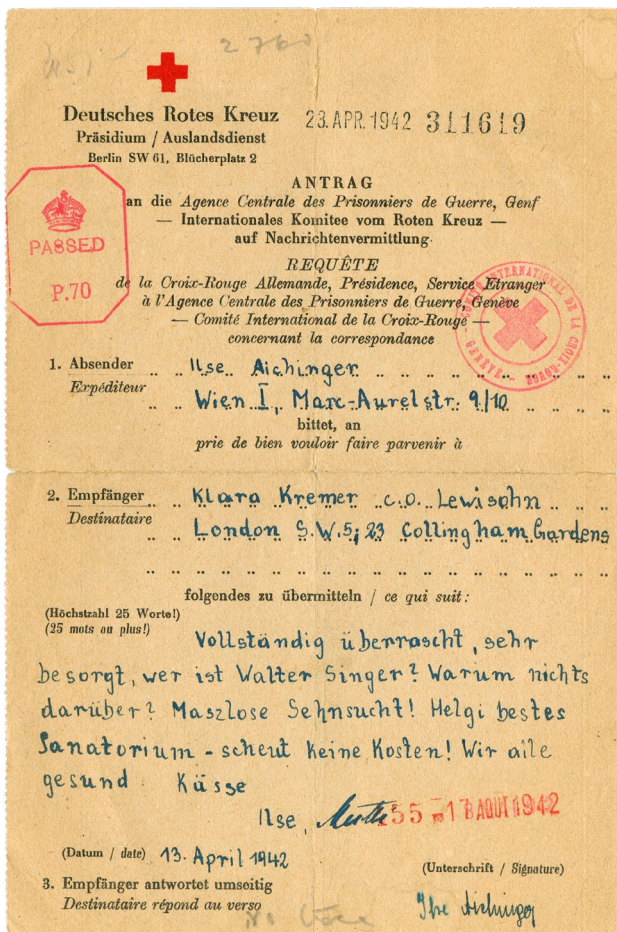 2760
Deutsches Rotes Kreuz
23. APR. 1942 311619
Präsidium / Auslandsdienst
Berlin SW 61, Blücherplatz 2
ANTRAG
an die Agence Centrale des Prisonniers de Guerre, Genf
— Internationales Komitee vom Roten Kreuz —
auf Nachrichtenvermittlung
PASSED
P.70
REQUÊTE
de la Croix-Rouge Allemande, Présidence, Service Etranger
à l'Agence Centrale des Prisonniers de Guerre, Genève
— Comité International de la Croix-Rouge —
concernant la correspondance
COMITÉ INTERNATIONAL DE LA CROIX-ROUGE — GENÈVE —
1. Absender Ilse Aichinger
Expéditeur
Wien I, Marc-Aurelstr. 9/10
bittet, an
prie de bien vouloir faire parvenir à
2. Empfänger Klara Kremer c.o. Lewisohn
Destinataire
London S.W.5; 23 Collingham Gardens
folgendes zu übermitteln / ce qui suit:
(Höchstzahl 25 Worte!)
(25 mots au plus!)
Vollständig überrascht, sehr
besorgt, wer ist Walter Singer? Warum nichts
darüber? Maszlose Sehnsucht! Helgi bestes
Sanatorium - scheut keine Kosten! Wir alle
gesund Küsse
Ilse,
18 AOUT 1942
(Datum / date) 13. April 1942
(Unterschrift / Signature)
3. Empfänger antwortet umseitig
Destinataire répond au verso
Ilse Aichinger